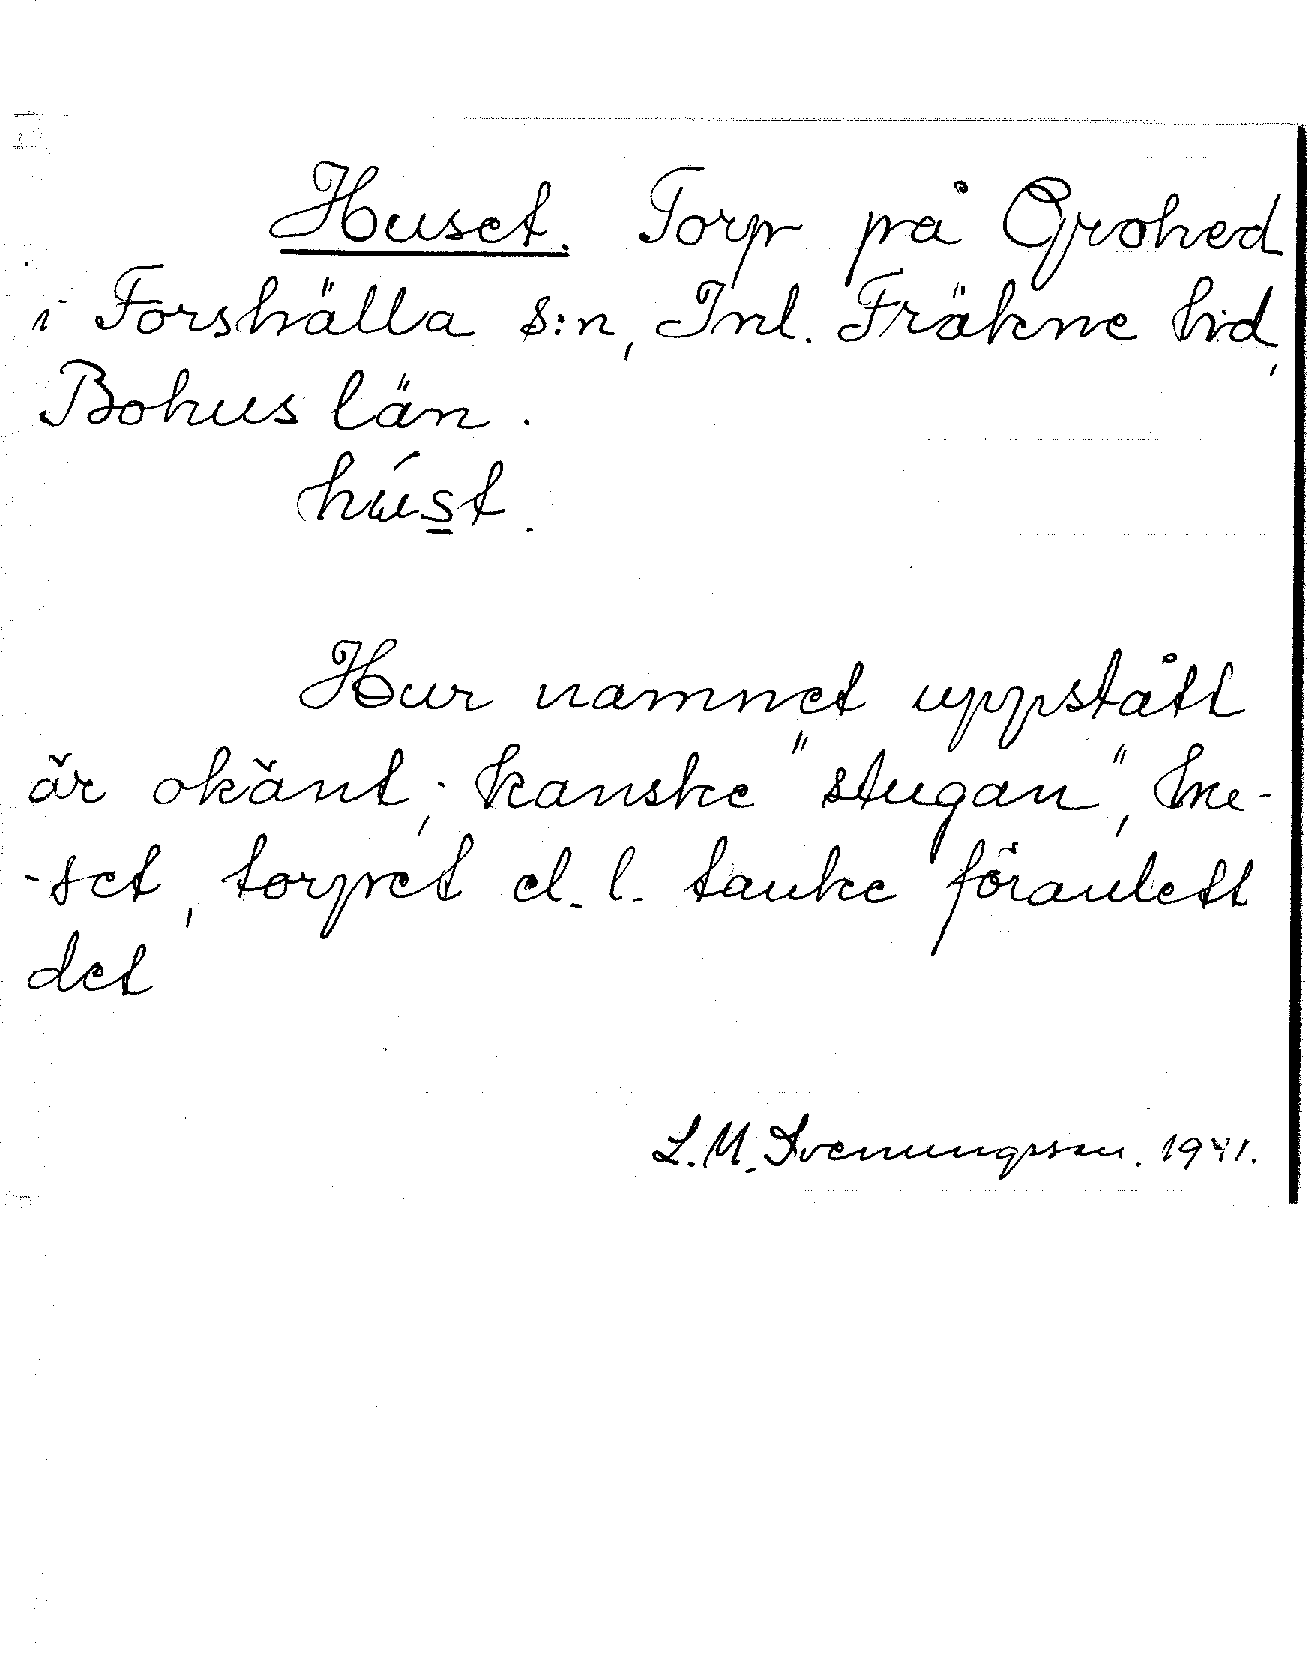 Huset. Torp på Grohed
i Forshälla s:n, Inl. Fräkne hd,
Bohus län.
húst.
Hur namnet uppstått
är okänt; kanske "stugan", hu-
-set, torpet el. l. tanke föranlett
det
L.M. Svenungsson. 1941.